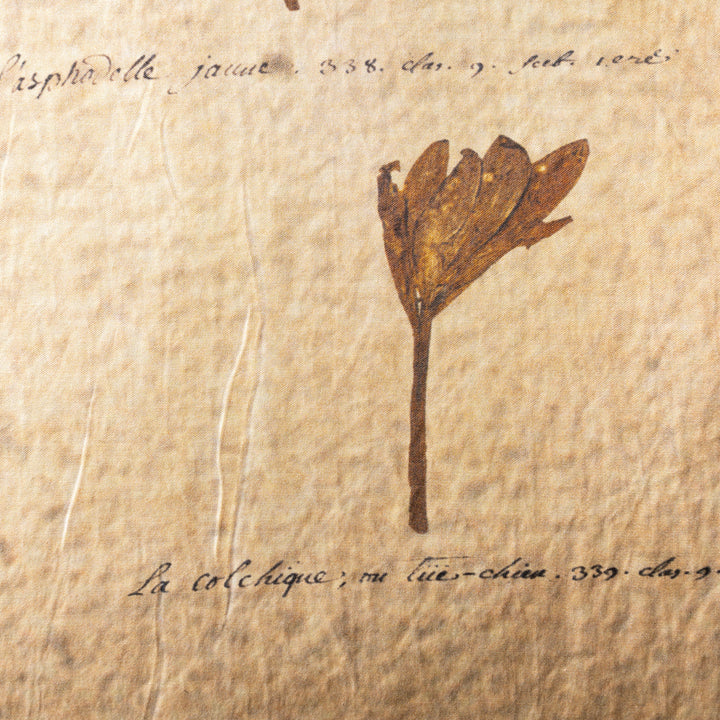 l'asphodelle jaune. 338. clas. 9.
La colchique; ou tüe-chien. 339. clas. 9.